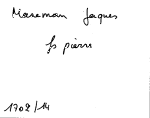 Mareman Jacques
fs pierre
1702/14